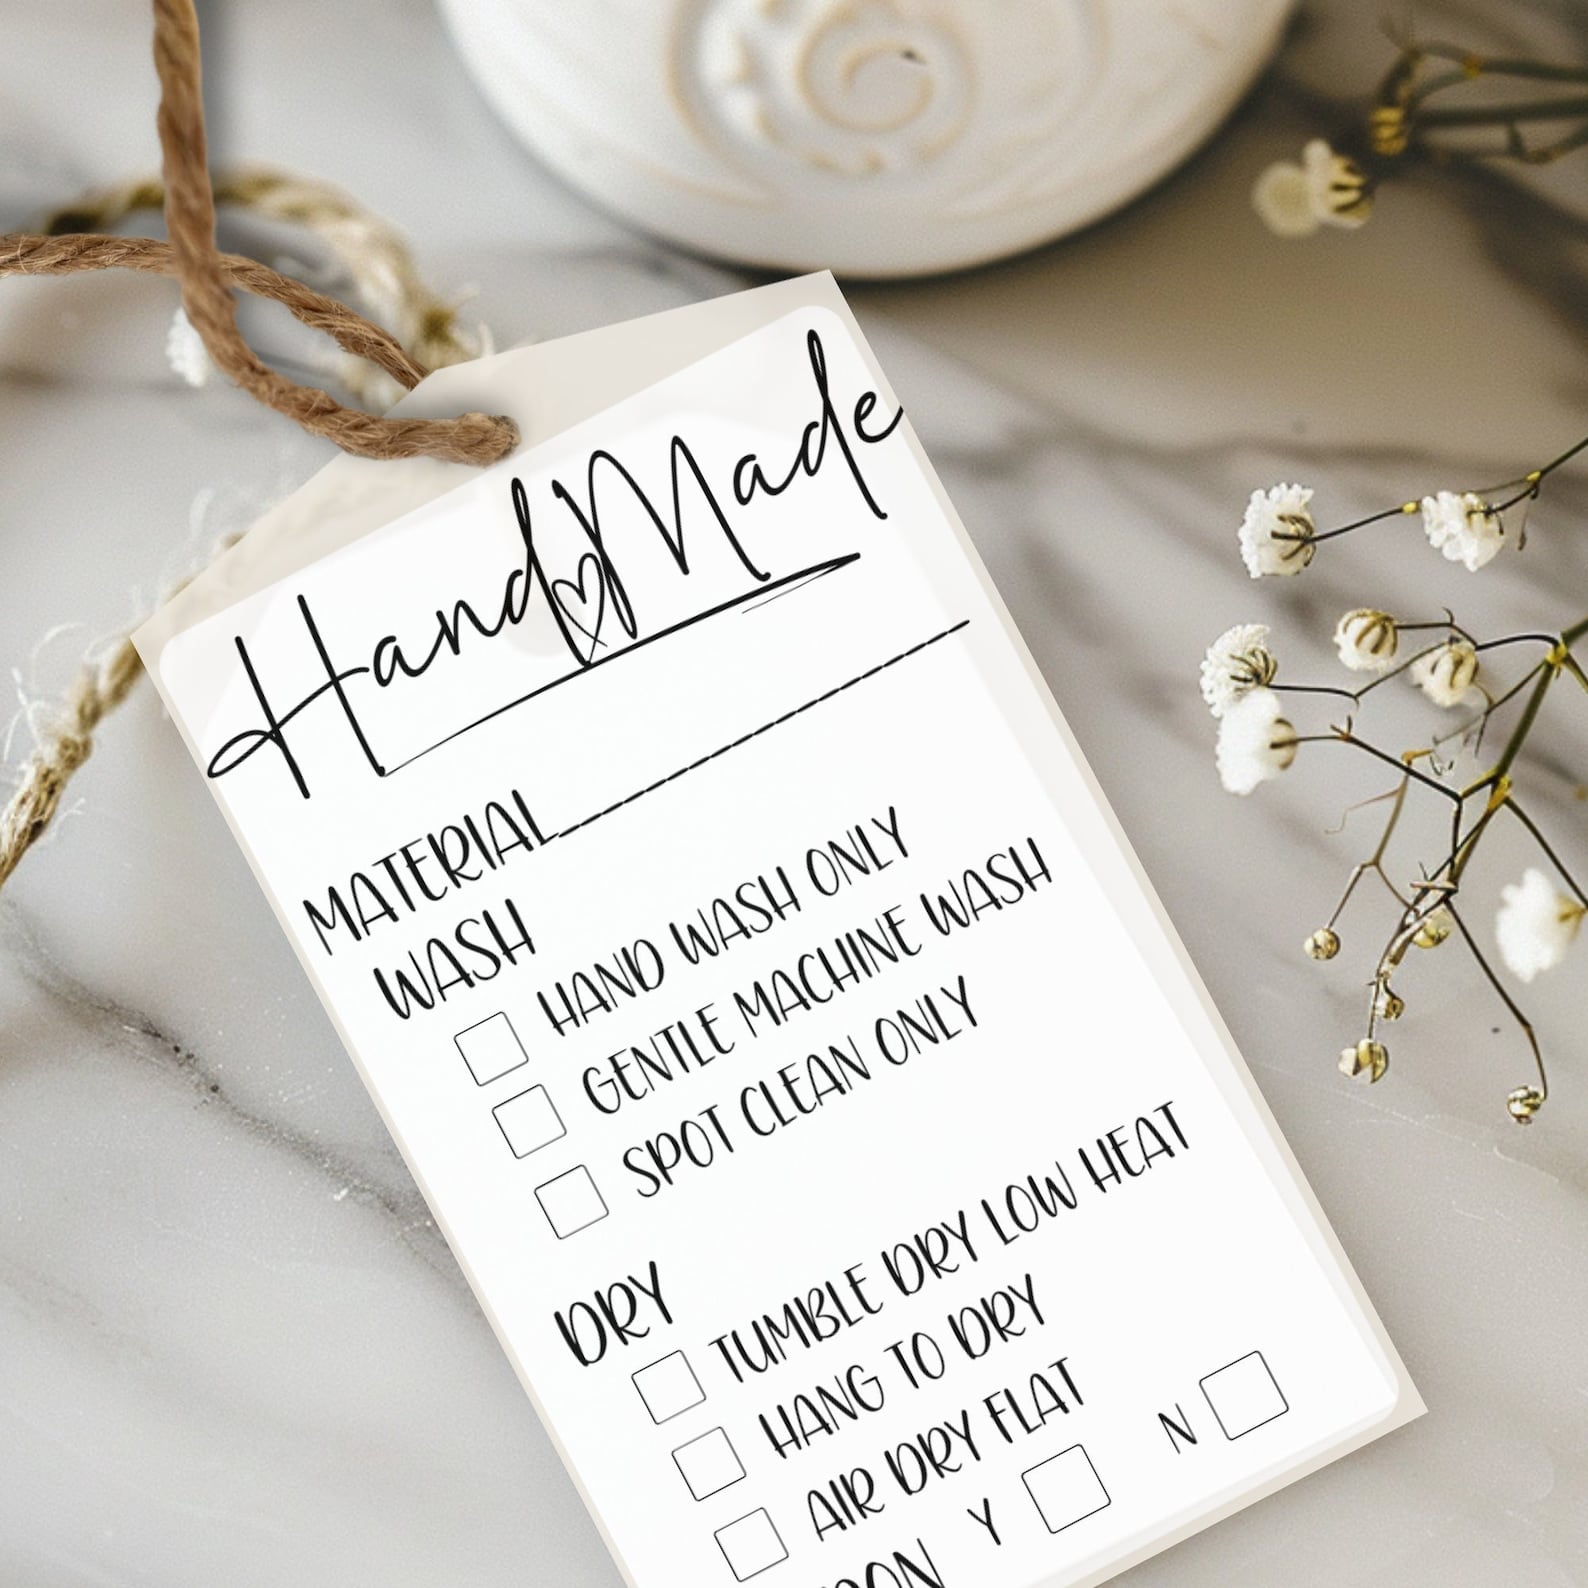 Hand Made
MATERIAL
WASH
HAND WASH ONLY
GENTLE MACHINE WASH
SPOT CLEAN ONLY
DRY
TUMBLE DRY LOW HEAT
HANG TO DRY
AIR DRY FLAT
Y N